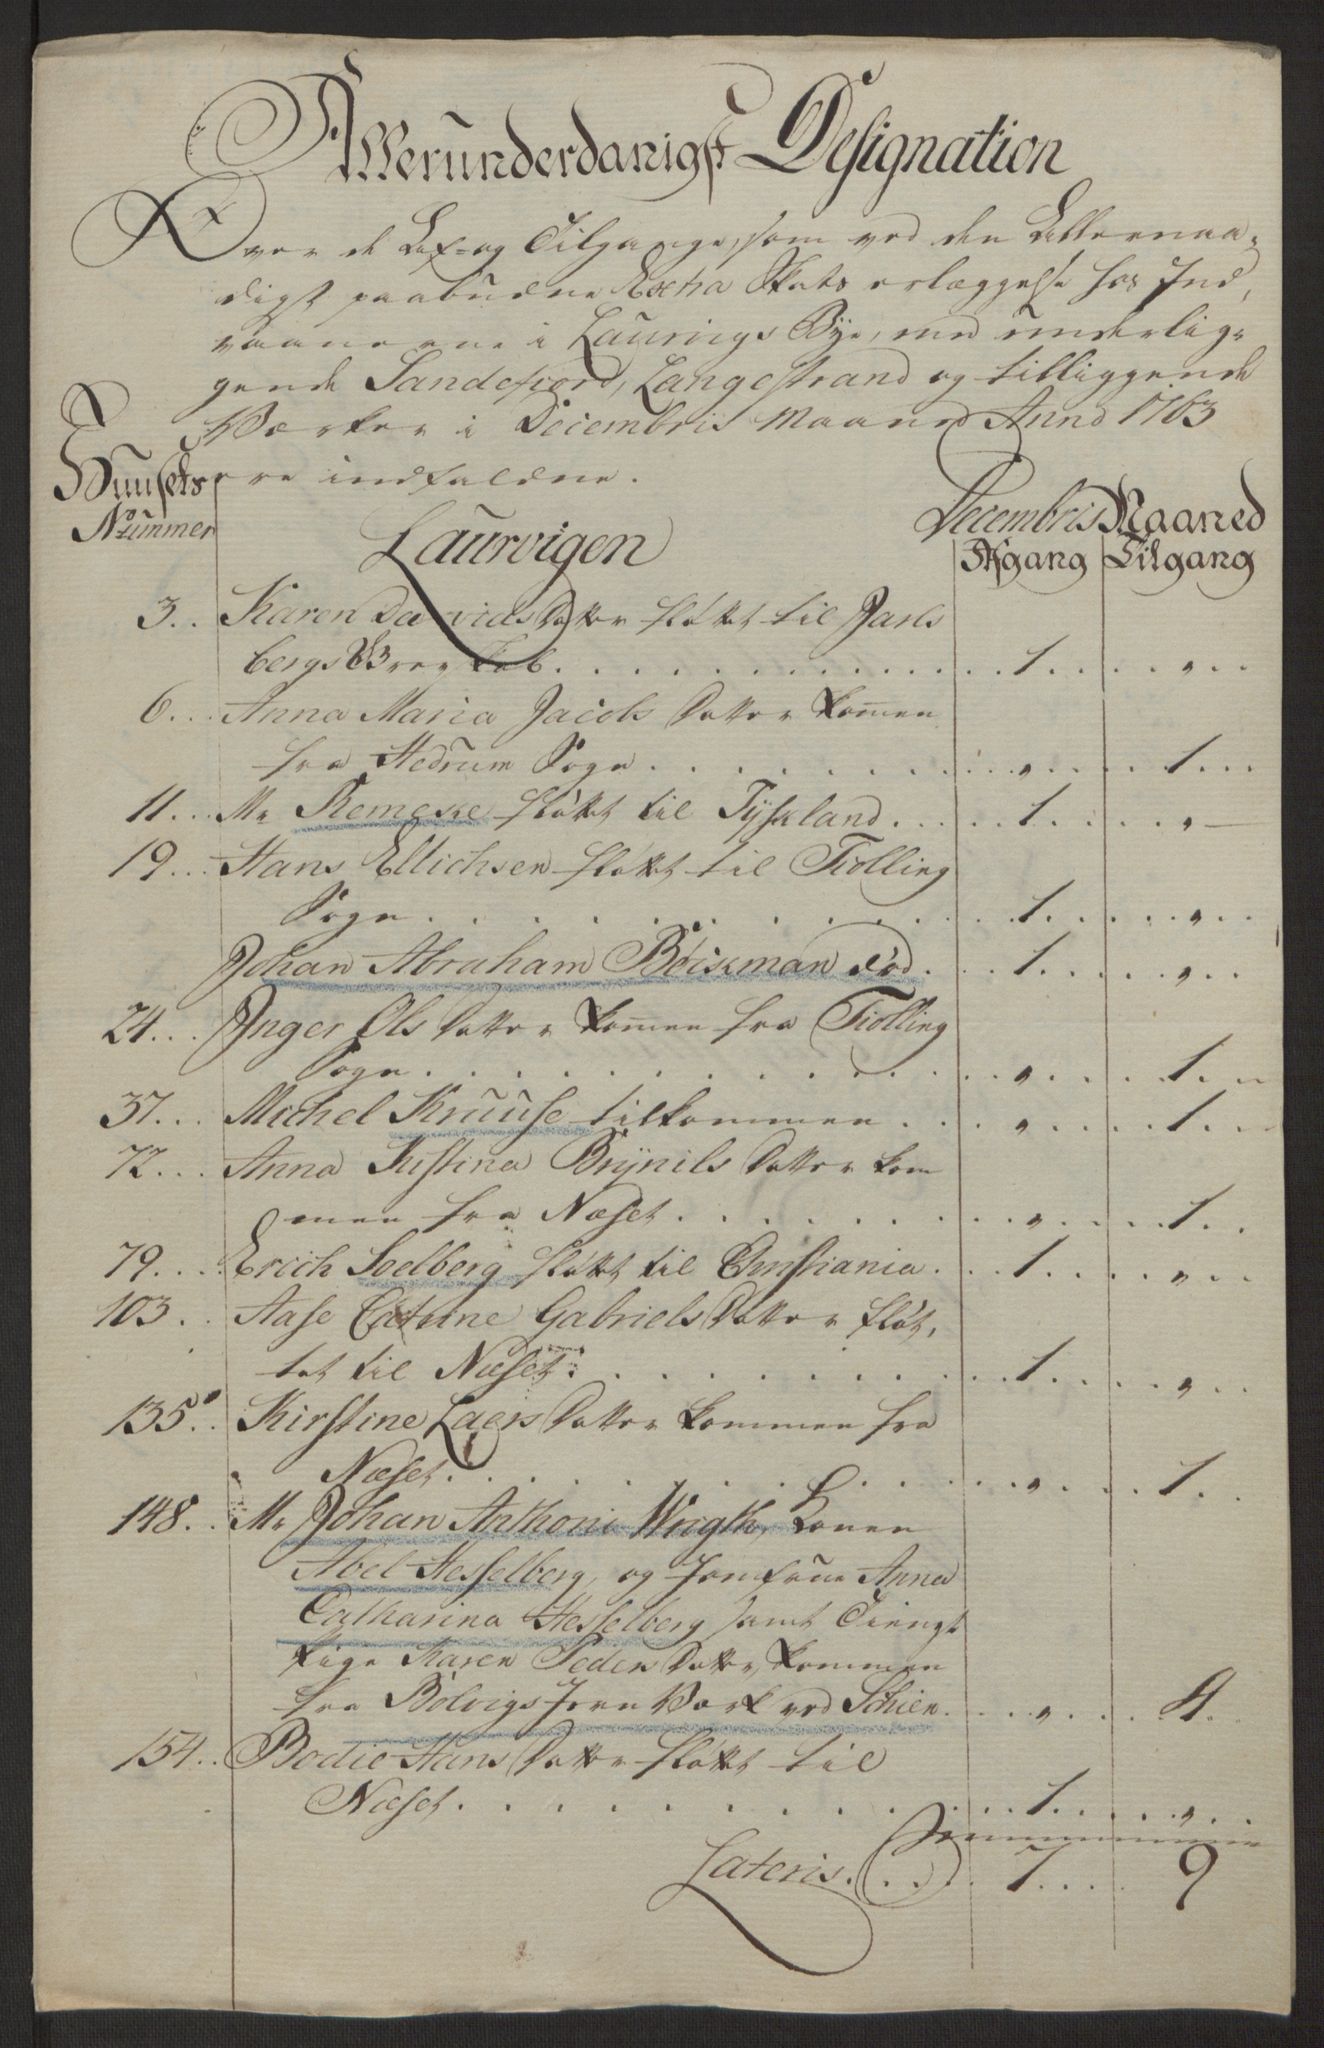 Allerunderdanigst Designation
Over de Af- og Tilgange, som ved den Allernaa-
digst paabudne Extra Skats erlæggelse hos Ind-
vaanerne i Laurvigs Bye, med underlig-
gende Sandefiord, Langestrand og tilliggende
Værker i Decembris Maaned Anno 1763
ere indfaldne.
Huusets
Nummer
Laurvigen
Decembris Maaned
Afgang Tilgang
3... Karen Davids Datter fløttet til Jarls
bergs Grevskab . . . 1 . . . „ . .
6... Anna Maria Jacobs Datter kommen
fra Hedrum Sogn . . . „ . . . 1 . .
11... Mr Remeske fløttet til Tyskland . . . 1 . . . „
19... Hans Ellichsen fløttet til Tiolling
Sogn . . . 1 . . . „ . .
Johan Abraham Böiskman död . . . 1 . . . „ . .
24... Inger Ols Datter kommen fra Tiolling
Sogn . . . „ . . . 1 . .
37... Michel Kruuse tilkommen . . . „ . . . 1 . .
72... Anna Kistina Brÿnils Datter kom
men fra Næset . . . „ . . . 1 . .
79... Erich Soelberg fløttet til Christiania . . . 1 . . . „ . .
103.. Aase Catrine Gabriels Datter fløt,
tet til Næset . . . 1 . . . „ . .
135.. Kirstine Laers Datter kommen fra
Næset . . . „ . . . 1 . .
148.. Mr Johan Anthoni Wrigth, Konen
Abel Hesselberg, og Jomfrue Anna
Catharina Hesselberg samt Tieneste
Pige Karen Peders Datter, kommen
fra Bolvigs Jern Værk ved Schien . . . „ . . . 4 .
154.. Bodie Hans Datter fløttet til
Næset . . . 1 . . . „ . .
Lateris . . . 7 . . . 9